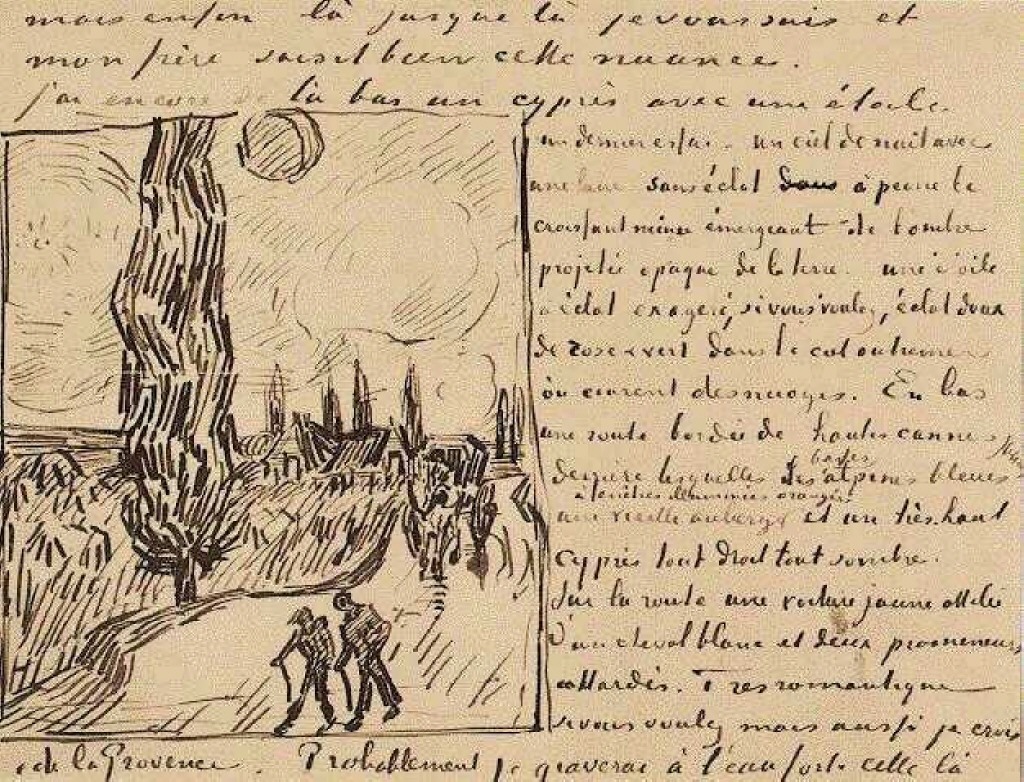 mais enfin là jusque là je vous sais et
mon frère saisit bien cette nuance.
j'ai encore de là bas un cyprès avec une étoile.
un dernier essai – un ciel de nuit avec
une lune sans éclat dans à peine le
croissant mince émergeant de l'ombre
projetée opaque de la terre – une étoile
à éclat exagéré, si vous voulez, éclat doux
de rose & vert dans le ciel outremer
où courent des nuages. En bas
une route bordée de hautes cannes
derrière lesquelles les basses alpines bleues
à fenêtres illuminées orangées
une vieille auberge et un très haut
cyprès tout droit tout sombre.
Sur la route une voiture jaune attelée
d'un cheval blanc et deux promeneurs
attardés. Très romantique
si vous voulez mais aussi je crois
de la Provence. Probablement je graverai à l'eau forte celle là